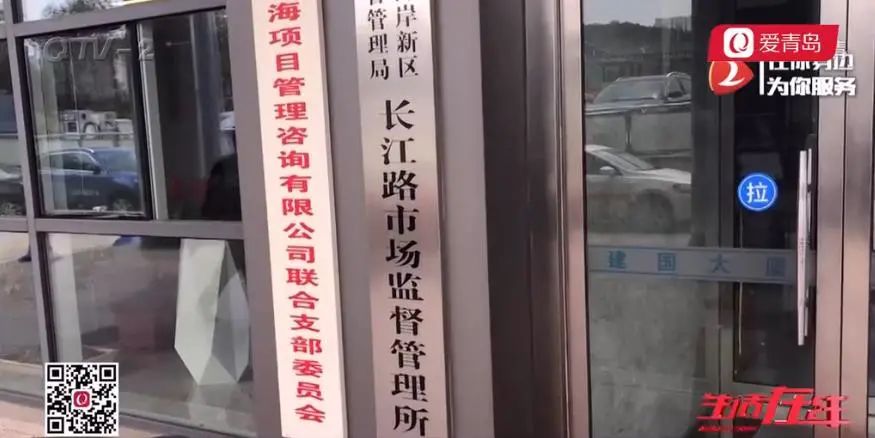 QTV-2
爱青岛
为你服务
海项目管理咨询有限公司联合支部委员会
管理局
岸新区
长江路市场监督管理所
拉
建国大厦
生活在线